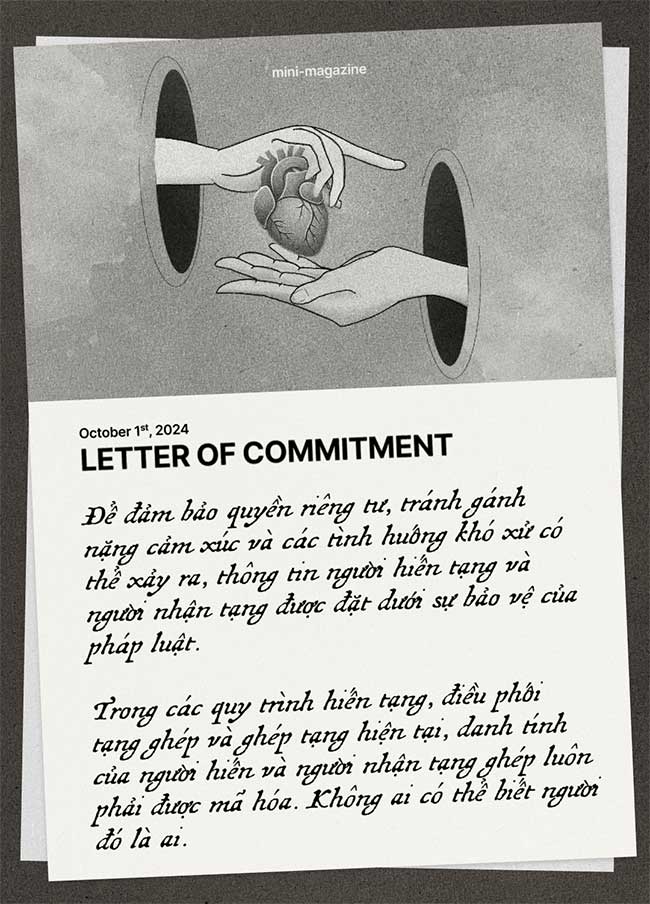 mini-magazine
October 1st, 2024
LETTER OF COMMITMENT
Để đảm bảo quyền riêng tư, tránh gánh
nặng cảm xúc và các tình huống khó xử có
thể xảy ra, thông tin người hiến tạng và
người nhận tạng được đặt dưới sự bảo vệ của
pháp luật.
Trong các quy trình hiến tạng, điều phối
tạng ghép và ghép tạng hiện tại, danh tính
của người hiến và người nhận tạng ghép luôn
phải được mã hóa. Không ai có thể biết người
đó là ai.